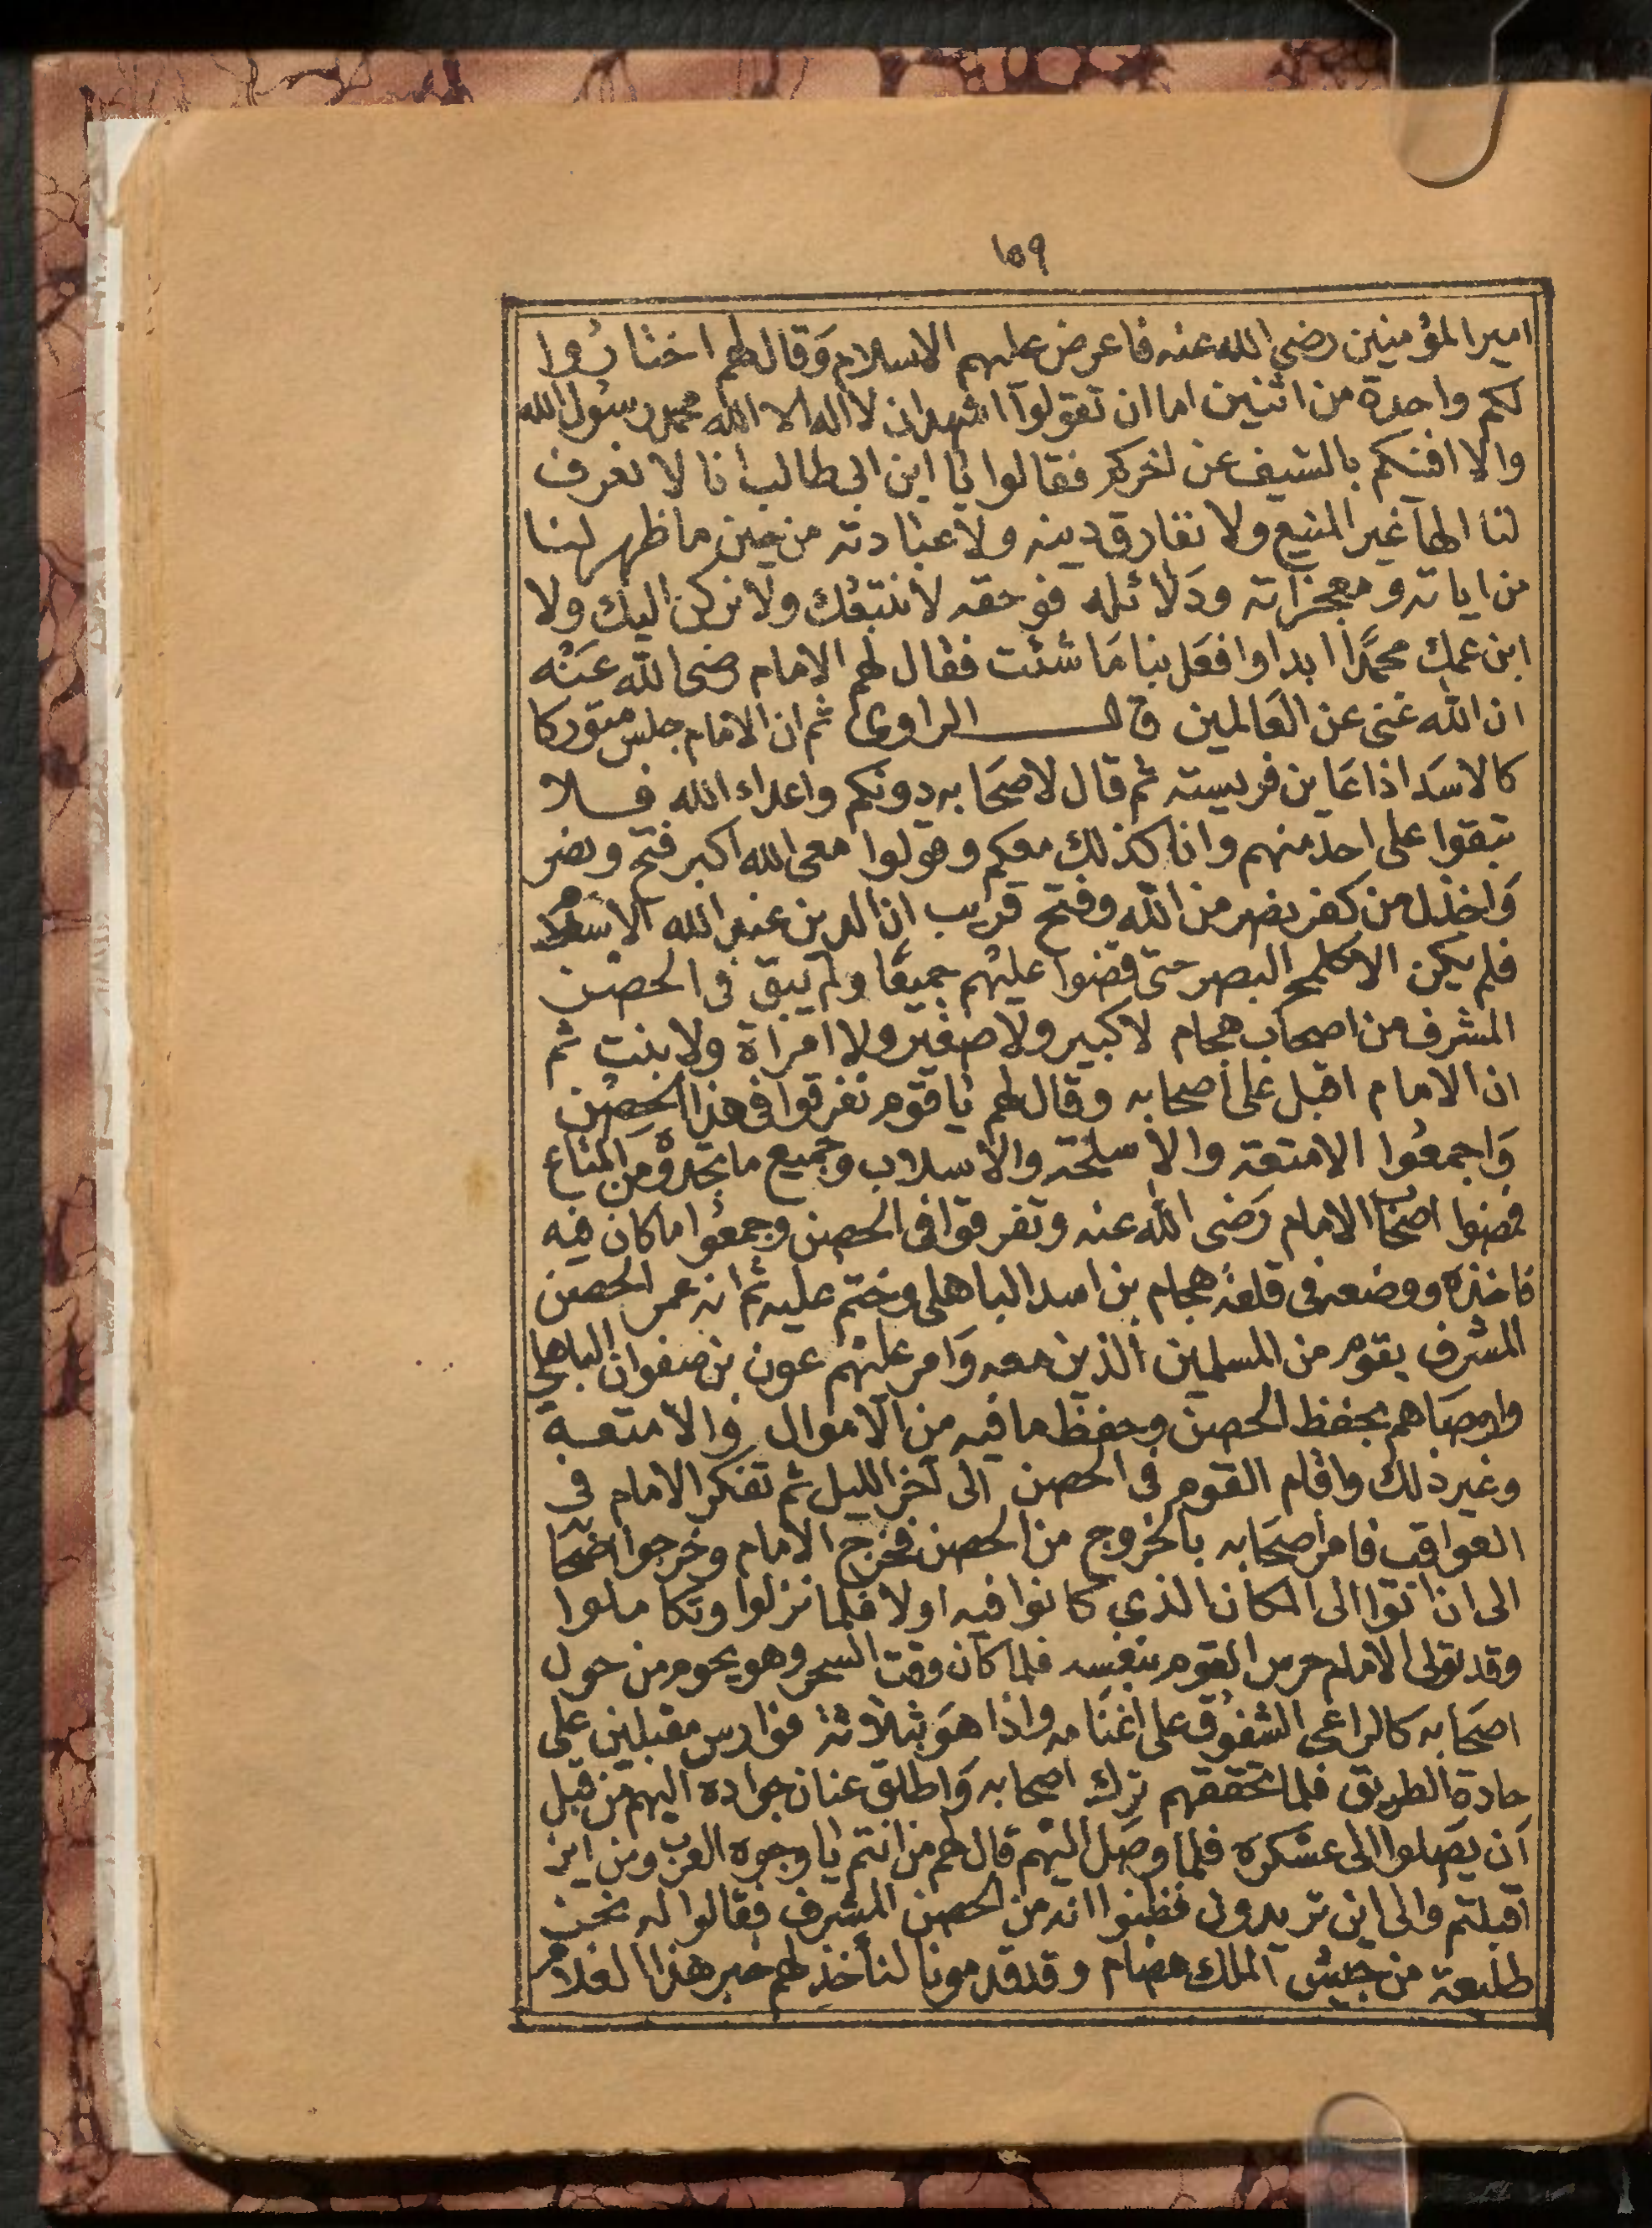 ١٥٩
امير المؤمنين رضي الله عنه فاعرض عليهم الاسلام وقال لهم اختاروا
لكم واحدة من اثنين اما ان تقولوا اشهد ان لا اله الا الله محمد رسول الله
والا افنيكم بالسيف عن اخركم فقالوا يا ابن ابي طالب انا لا نعرف
لنا الها غير المنيع ولا نفارق دينه ولا عبادته من حين ما ظهر لنا
من اياته ومعجزاته ودلائله فوحقه لا نتبعك ولا نركن اليك ولا
ابن عمك محمدا ابدا وافعل بنا ما شئت فقال لهم الامام رضي الله عنه
ان الله غني عن العالمين قال الراوي ثم ان الامام جلس متوركا
كالاسد اذا عاين فريسته ثم قال لاصحابه دونكم واعداء الله فلا
تبقوا على احد منهم وانا كذلك معكم وقولوا معي الله اكبر فتح ونصر
واخذل من كفر نصر من الله وفتح قريب ان الدين عند الله الاسلام
فلم يكن الا كلمح البصر حتى قضوا عليهم جميعا ولم يبق في الحصن
المشرف من اصحاب هجام لا كبير ولا صغير ولا امراة ولا بنت ثم
ان الامام اقبل على اصحابه وقال لهم يا قوم تفرقوا في هذا الحصن
واجمعوا الامتعة والاسلحة والاسلاب وجميع ما تجدوه من المتاع
فمضوا اصحاب الامام رضي الله عنه وتفرقوا في الحصن وجمعوا ما كان فيه
فاخذه ووضعه في قلعة هجام بن اسد الباهلي وختم عليه ثم انه عمر الحصن
المشرف بقوم من المسلمين الذين معه وامر عليهم عون بن صفوان الباهلي
واوصاهم بحفظ الحصن وحفظ ما فيه من الاموال والامتعة
وغير ذلك واقام القوم في الحصن الى آخر الليل ثم تفكر الامام في
العواقب فامر اصحابه بالخروج من الحصن فخرج الامام وخرجوا اصحابه
الى ان اتوا الى المكان الذي كانوا فيه اولا فلما نزلوا وتكاملوا
وقد تولى الامام حرس القوم بنفسه فلما كان وقت السحر وهو يحوم من حول
اصحابه كالراعي الشفوق على اغنامه واذا هو بثلاثة فوارس مقبلين على
جادة الطريق فلما تحققهم ترك اصحابه واطلق عنان جواده اليهم من قبل
أن يصلوا الى عسكره فلما وصل اليهم قال لهم من انتم يا وجوه العرب ومن اين
أقبلتم والى اين تريدون فظنوا انه من الحصن المشرف فقالوا له نحن
طليعة من جيش الملك هضام وقد قدمونا لنأخذ لهم خبر هذا الغلام